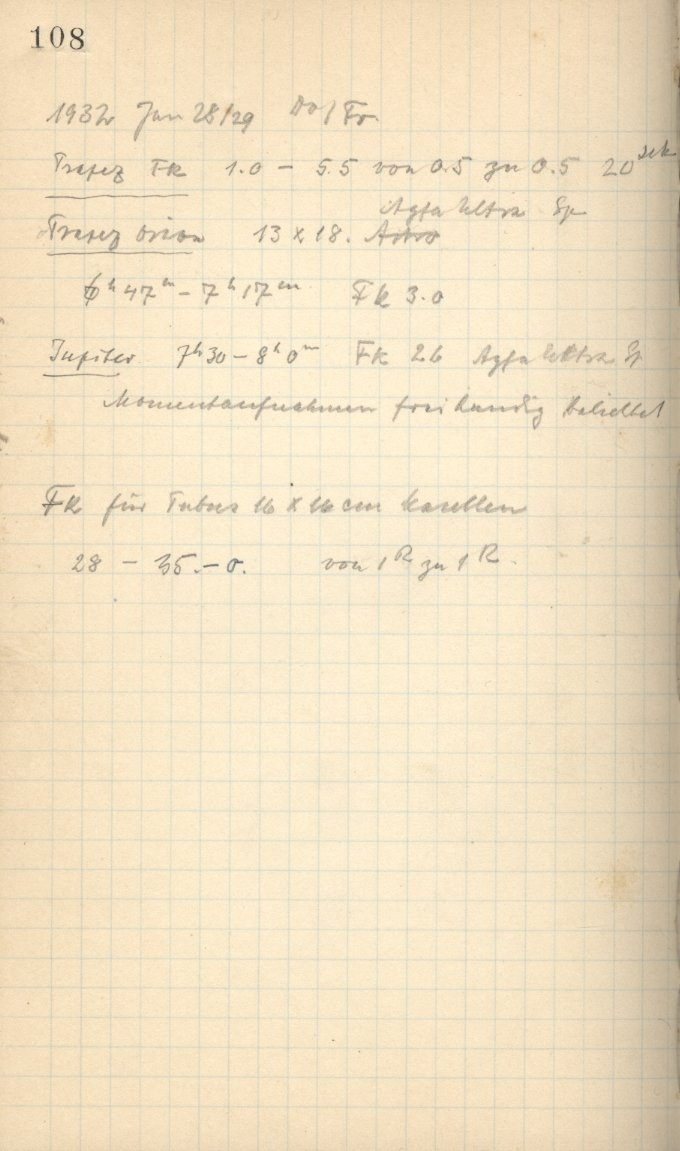 108
1932 Jan 28/29 Do/Fr.
Trapez FK 1.0 – 5.5 von 0.5 zu 0.5 20 sek
Agfa Ultra Sp
Trapez Orion 13 x 18. Astro
6h 47m – 7h 17m FK 3.0
Jupiter 7h 30 – 8h 0m FK 26 Agfa Ultra Sp
Momentaufnahmen freihandig belichtet
FK für Tubus 16 x 16 cm Kasetten
28 – 35.–0. von 1R zu 1R.